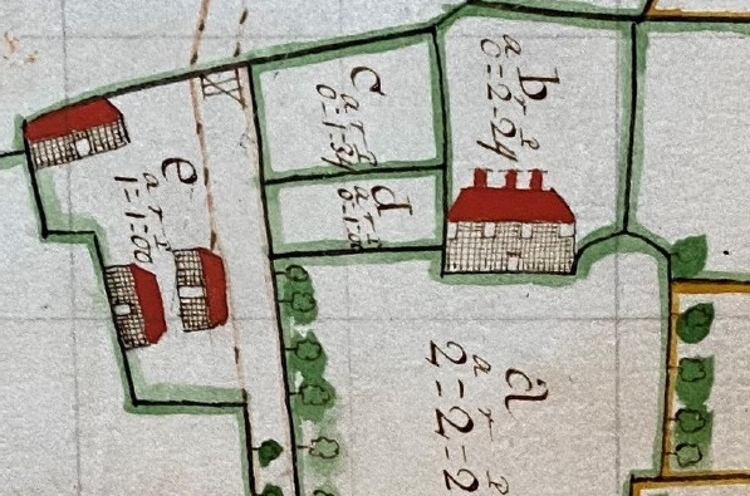 b
a r p
0=2=24
c
a r p
0=1=34
d
a r p
e
a r p
1=1=00
a
a r p
2=2=2